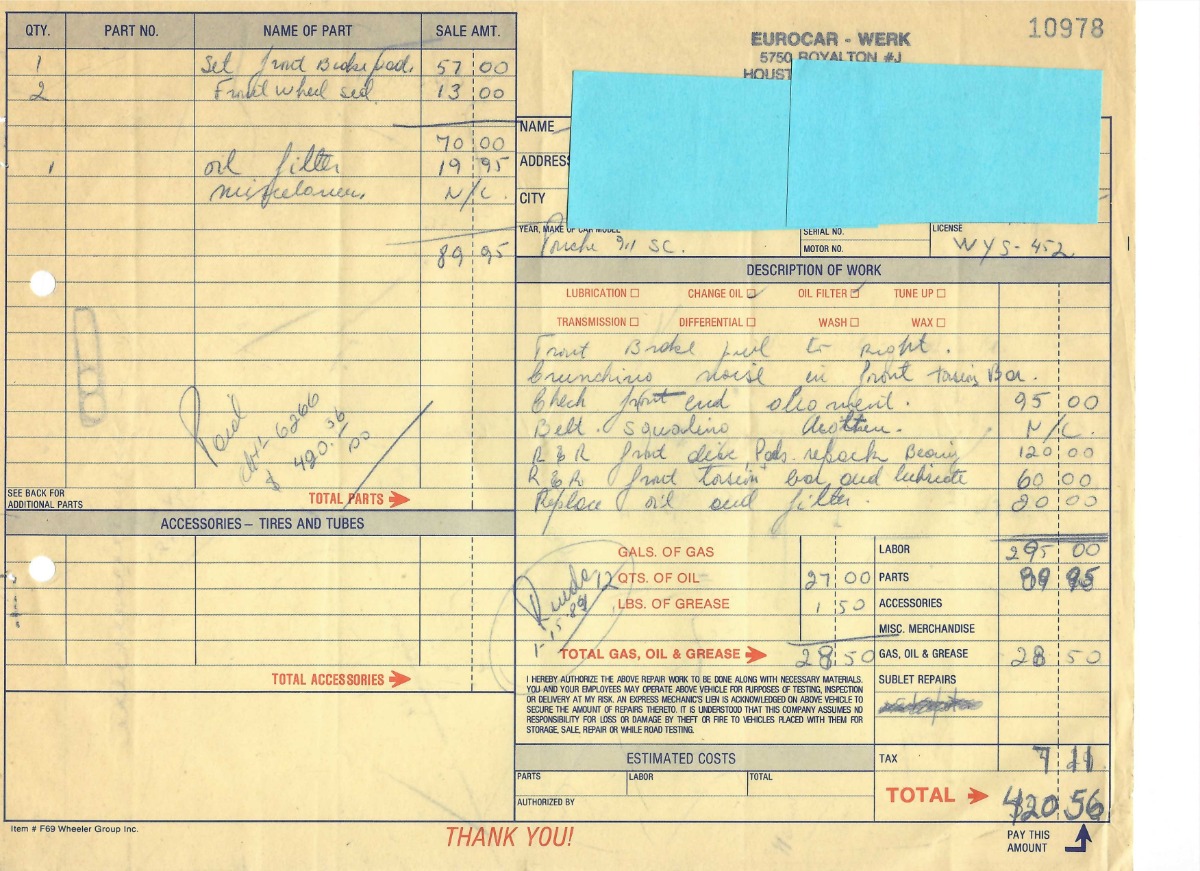 10978
EUROCAR - WERK
5750 ROYALTON #J
HOUST
QTY. PART NO. NAME OF PART SALE AMT.
1 Set front Brake pads 57 00
2 Front wheel seal 13 00
70 00
1 oil filter 19 95
N/C.
89 95
Paid
6266
$ 420.56
SEE BACK FOR
ADDITIONAL PARTS
TOTAL PARTS
ACCESSORIES – TIRES AND TUBES
TOTAL ACCESSORIES
Item # F69 Wheeler Group Inc.
NAME
ADDRESS
CITY
YEAR, MAKE OF CAR MODEL
Porsche 911 SC.
SERIAL NO.
MOTOR NO.
LICENSE
WYS-452
DESCRIPTION OF WORK
LUBRICATION CHANGE OIL OIL FILTER TUNE UP
TRANSMISSION DIFFERENTIAL WASH WAX
Front Brake pull to right.
noise in front torsion Bar.
Check front end 95 00
Belt. N/C.
R & R front disc Pads. repack Bearing 120 00
R & R front torsion bar and lubricate 60 00
Replace oil and filter. 20 00
GALS. OF GAS
12 QTS. OF OIL 27 00
LBS. OF GREASE 1 50
TOTAL GAS, OIL & GREASE 28 50
LABOR 295 00
PARTS 89 95
ACCESSORIES
MISC. MERCHANDISE
GAS, OIL & GREASE 28 50
SUBLET REPAIRS
I HEREBY AUTHORIZE THE ABOVE REPAIR WORK TO BE DONE ALONG WITH NECESSARY MATERIALS.
YOU AND YOUR EMPLOYEES MAY OPERATE ABOVE VEHICLE FOR PURPOSES OF TESTING, INSPECTION
OR DELIVERY AT MY RISK. AN EXPRESS MECHANIC'S LIEN IS ACKNOWLEDGED ON ABOVE VEHICLE TO
SECURE THE AMOUNT OF REPAIRS THERETO. IT IS UNDERSTOOD THAT THIS COMPANY ASSUMES NO
RESPONSIBILITY FOR LOSS OR DAMAGE BY THEFT OR FIRE TO VEHICLES PLACED WITH THEM FOR
STORAGE, SALE, REPAIR OR WHILE ROAD TESTING.
ESTIMATED COSTS
PARTS LABOR TOTAL
AUTHORIZED BY
TAX 7 11
TOTAL 420.56
THANK YOU!
PAY THIS
AMOUNT